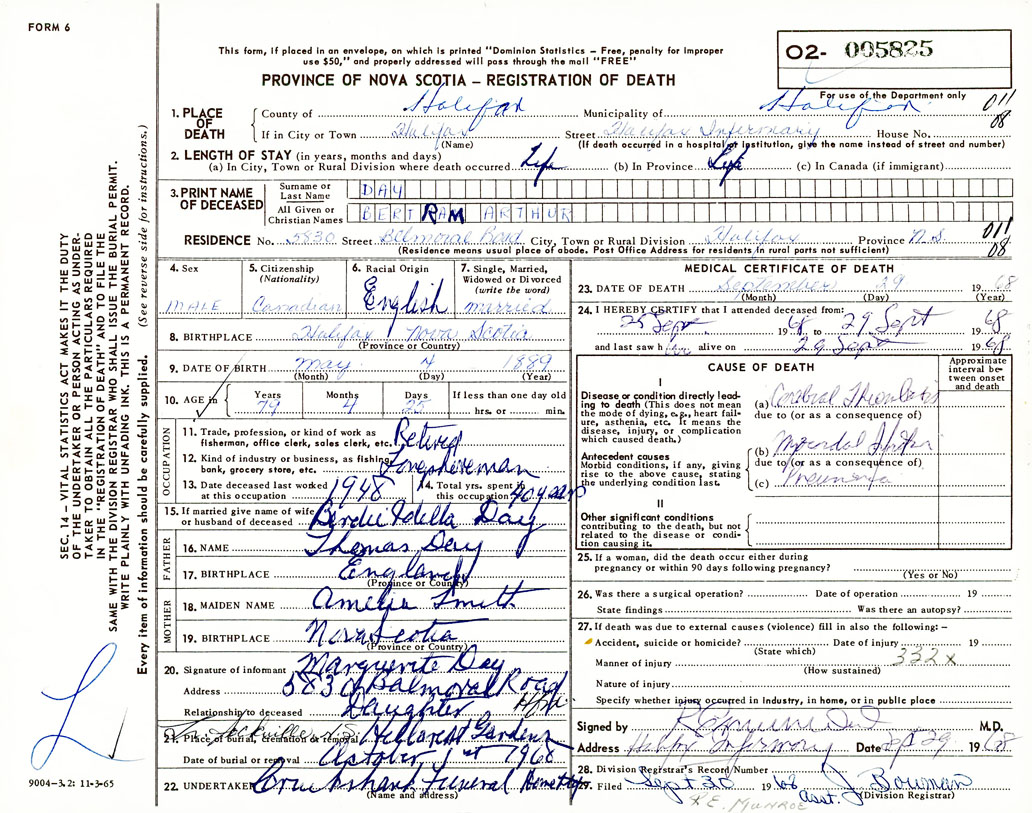 FORM 6
This form, if placed in an envelope, on which is printed "Dominion Statistics – Free, penalty for improper
use $50," and properly addressed will pass through the mail "FREE"
PROVINCE OF NOVA SCOTIA – REGISTRATION OF DEATH
O2- 005825
For use of the Department only
1. PLACE OF DEATH
County of Halifax Municipality of Halifax 011
If in City or Town Halifax Street Halifax Infirmary House No. 08
(Name) (If death occurred in a hospital or institution, give the name instead of street and number)
2. LENGTH OF STAY (in years, months and days)
(a) In City, Town or Rural Division where death occurred Life (b) In Province Life (c) In Canada (if immigrant)
3. PRINT NAME OF DECEASED
Surname or Last Name DAY
All Given or Christian Names BERTRAM ARTHUR
RESIDENCE No. 5830 Street Balmoral Road City, Town or Rural Division Halifax Province N.S. 011
(Residence means usual place of abode. Post Office Address for residents in rural parts not sufficient) 08
4. Sex MALE
5. Citizenship (Nationality) Canadian
6. Racial Origin English
7. Single, Married, Widowed or Divorced (write the word) married
8. BIRTHPLACE Halifax Nova Scotia
(Province or Country)
9. DATE OF BIRTH May 4 1889
(Month) (Day) (Year)
10. AGE in Years 79 Months 4 Days 25 If less than one day old hrs. or min.
OCCUPATION
11. Trade, profession, or kind of work as fisherman, office clerk, sales clerk, etc. Retired
12. Kind of industry or business, as fishing, bank, grocery store, etc. Longshoreman
13. Date deceased last worked at this occupation 1948
14. Total yrs. spent in this occupation 40 years
15. If married give name of wife or husband of deceased Berdie Idella Day
FATHER
16. NAME Thomas Day
17. BIRTHPLACE England
(Province or Country)
MOTHER
18. MAIDEN NAME Amelia Smith
19. BIRTHPLACE Nova Scotia
(Province or Country)
20. Signature of informant Marguerite Day
Address 5830 Balmoral Road
Hfx
Relationship to deceased Daughter
21. Place of burial, cremation or removal Sackville N.S. Hillcrest Gardens
Date of burial or removal October 1st 1968
22. UNDERTAKER Cruikshank Funeral Home
(Name and address)
MEDICAL CERTIFICATE OF DEATH
23. DATE OF DEATH September 29 1968
(Month) (Day) (Year)
24. I HEREBY CERTIFY that I attended deceased from:
25 Sept 1968 to 29 Sept 1968
and last saw h im alive on 29 Sept 1968
CAUSE OF DEATH
Approximate interval between onset and death
I
Disease or condition directly leading to death (This does not mean the mode of dying, e.g., heart failure, asthenia, etc. It means the disease, injury, or complication which caused death.)
(a) Cerebral Thrombosis
due to (or as a consequence of)
Antecedent causes
Morbid conditions, if any, giving rise to the above cause, stating the underlying condition last.
(b) Myocardial
due to (or as a consequence of)
(c) Pneumonia
II
Other significant conditions
contributing to the death, but not related to the disease or condition causing it.
25. If a woman, did the death occur either during
pregnancy or within 90 days following pregnancy?
(Yes or No)
26. Was there a surgical operation? Date of operation 19
State findings Was there an autopsy?
27. If death was due to external causes (violence) fill in also the following: –
Accident, suicide or homicide? Date of injury 19
(State which)
Manner of injury 332x
(How sustained)
Nature of injury
Specify whether injury occurred in industry, in home, or in public place
Signed by M.D.
Address Halifax Infirmary Date Sept 29 1968
28. Division Registrar's Record Number
29. Filed Sept 30 1968 Asst. J Bowman
(Division Registrar)
R.E. MUNROE
SEC. 14 – VITAL STATISTICS ACT MAKES IT THE DUTY
OF THE UNDERTAKER OR PERSON ACTING AS UNDER-
TAKER TO OBTAIN ALL THE PARTICULARS REQUIRED
IN THE "REGISTRATION OF DEATH" AND TO FILE THE
SAME WITH THE DIVISION REGISTRAR WHO SHALL ISSUE THE BURIAL PERMIT.
WRITE PLAINLY WITH UNFADING INK. THIS IS A PERMANENT RECORD.
Every item of information should be carefully supplied. (See reverse side for instructions.)
9004-3.2: 11-3-65